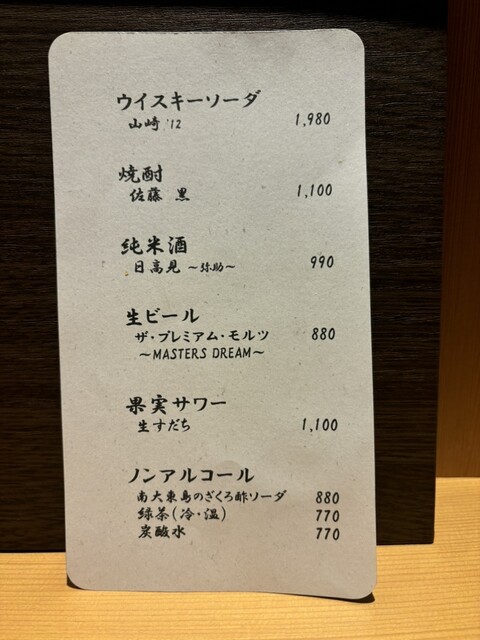 ウイスキーソーダ
山崎 '12 1,980
焼酎
佐藤 黒 1,100
純米酒
日高見 〜弥助〜 990
生ビール
ザ・プレミアム・モルツ 880
〜MASTERS DREAM〜
果実サワー
生すだち 1,100
ノンアルコール
南大東島のざくろ酢ソーダ 880
緑茶(冷・温) 770
炭酸水 770